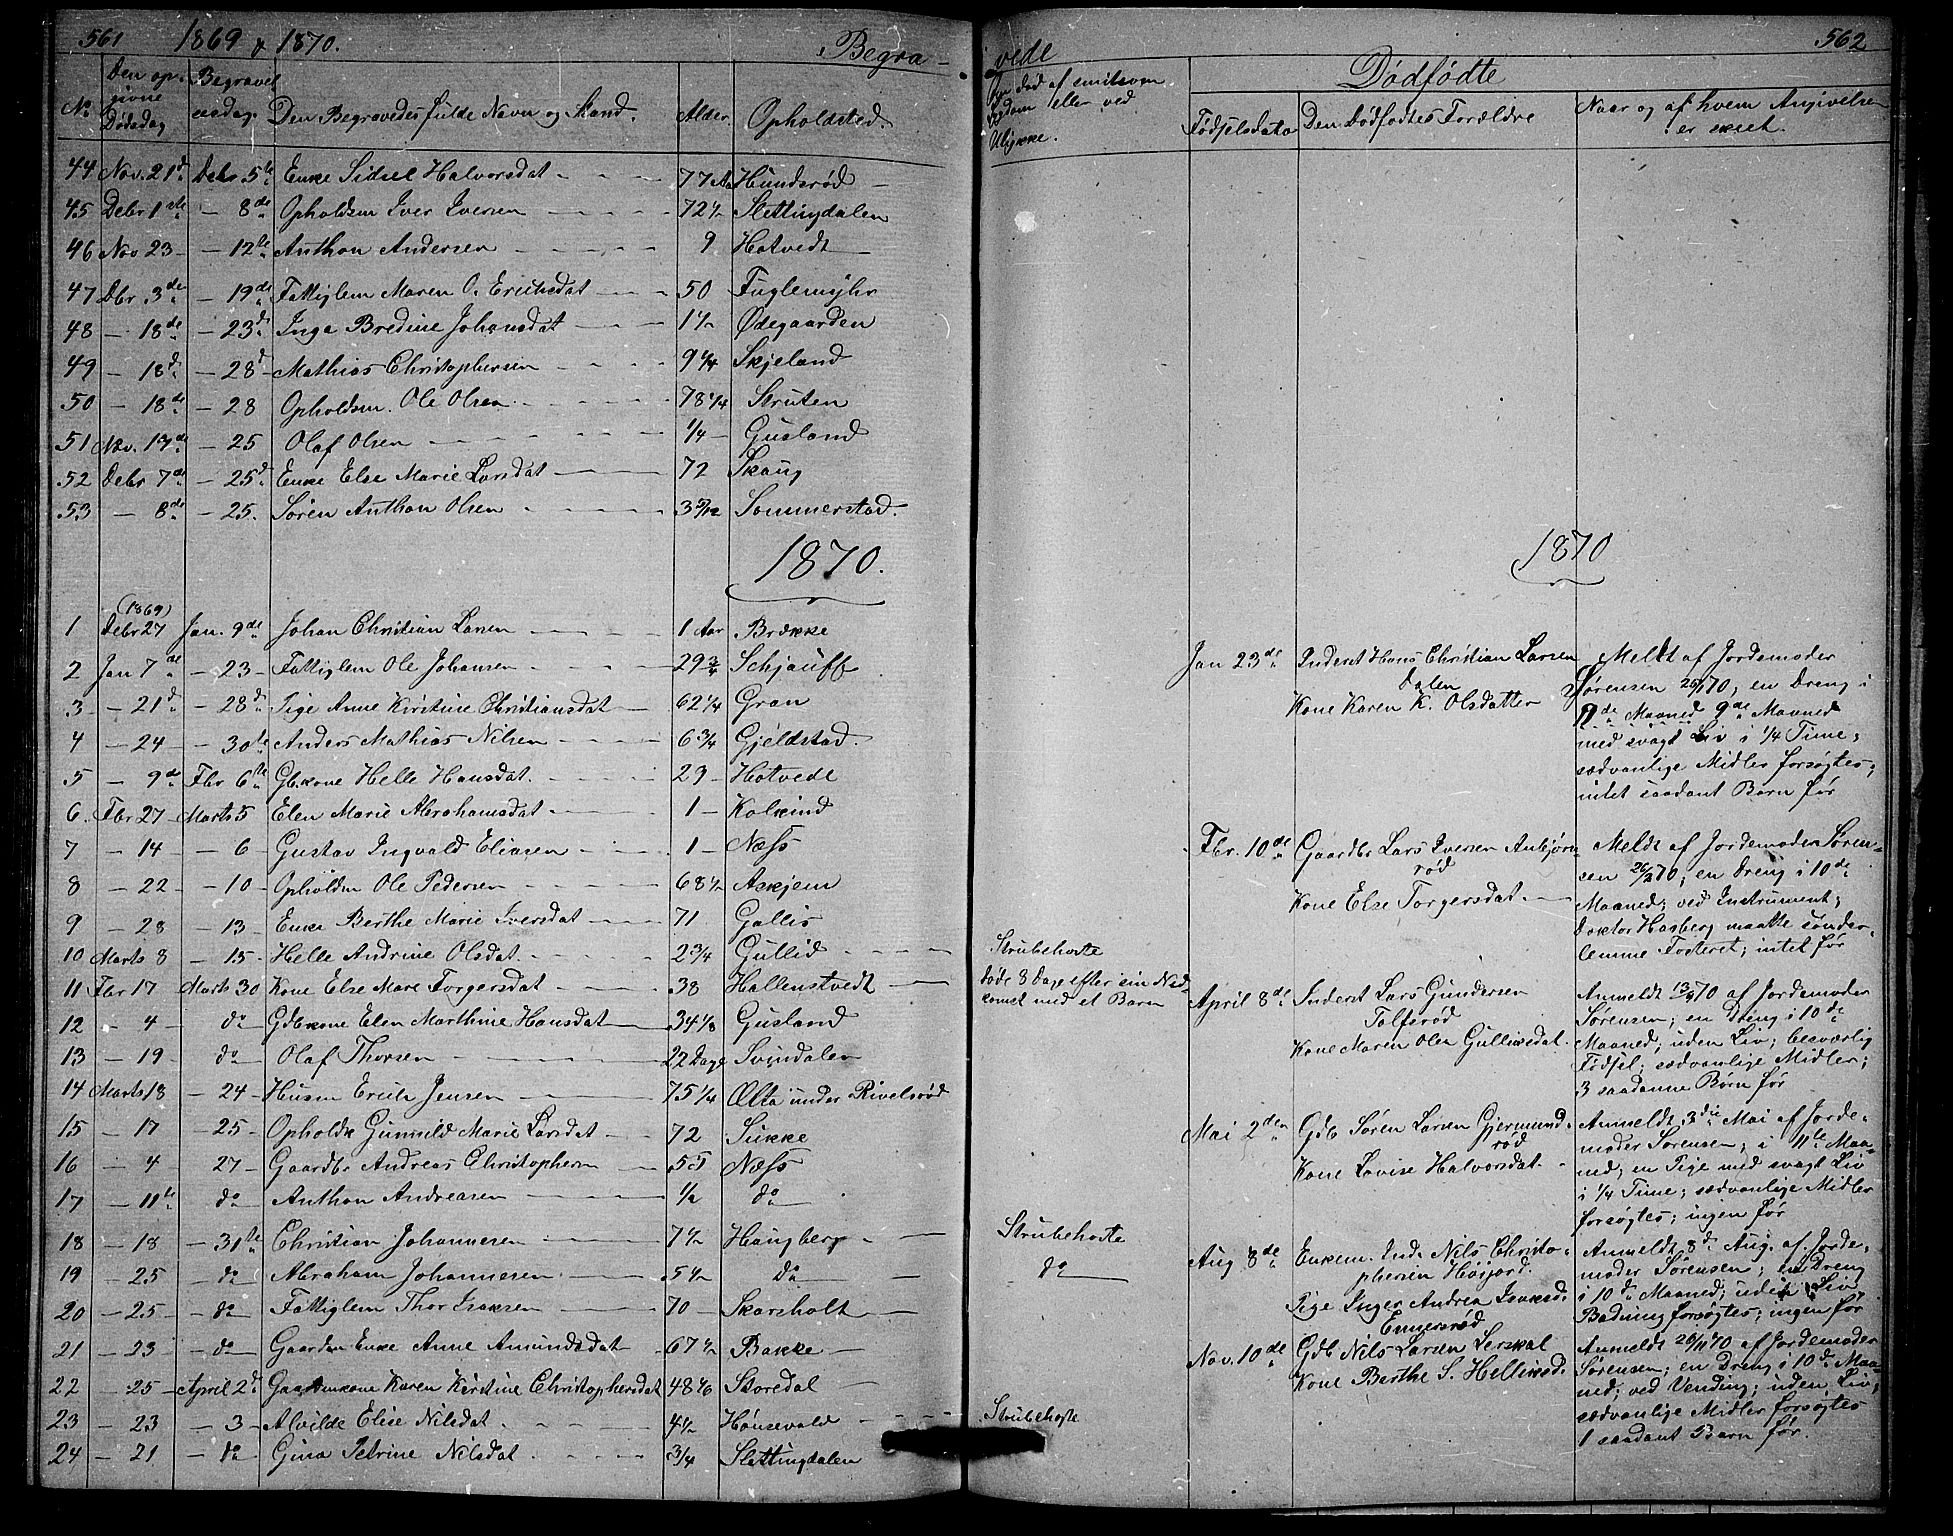 561 1869 & 1870. Begra-
No Den opgivne Dødsdag Begravelsesdag. Den Begravedes fulde Navn og Stand. Alder. Opholdsted.
44 Nov. 21d Debr 5te Enke Sidsel Halvorsdat 77 Aar Hundsrød
45 Debr 1ste - 8de Opholdsm Iver Iversen 72½ Slettingdalen
46 Nov 23 - 12te Anthon Andersen 9 Hotvedt
47 Dbr. 3de - 19de Fattiglem Maren O. Erichsdat 50 Fuglemyhr
48 - 18de - 23d Inga Bredine Johansdat 1½ Ødegaarden
49 - 18d - 28d Mathias Christophersen 9¼ Skjeland
50 - 18de - 28 Opholdsm. Ole Olsen 78¼ Struten
51 Nov. 17de - 25 Olaf Olsen ¼ Gusland
52 Debr 7de - 25d Enke Else Marie Larsdat 72 Skaug
53 - 8de - 25. Søren Anthon Olsen 3 5/12 Sommerstad.
1870.
(1869)
1 Debr 27 Jan. 9de Johan Christian Larsen 1 Aar Brække
2 Jan 7de - 23 Fattiglem Ole Johansen 29¾ Schjauff
3 - 21d - 28d Pige Anne Kirstine Christiansdat 62¼ Gran
4 - 24 - 30te Anders Mathias Nilsen 6¾ Gjeldstad.
5 - 9de Fbr 6te Gbkone Helle Hansdat. 29 Hotvedt
6. Fbr 27 Marts 5 Elen Marie Abrahamsdat 1 Kolkind
7 - 14 - 6 Gustav Ingvald Eliasen 1 Næss
8 - 22 - 10 Opholdsm Ole Pedersen 68½ Askjem
9 - 28 - 13 Enke Berthe Marie Iversdat 71 Gallis
10 Marts 8 - 15 Helle Andrine Olsdat. 2¾ Gullid
11 Fbr 17 Marts 30 Kone Else Mare Torgersdat 38 Hallenstvedt
12 - 4 do Gdbkone Elen Marthine Hansdat 34⅛ Gusland
13 - 19 do Olaf Thorsen 22 Dage Svindalen
14 Marts 18 - 24 Husm Erich Jensen 75¼ Ælta under Rivelsrød
15 - 17 - 25 Opholdsk Gunnild Marie Larsdat 72 Sukke
16 - 4 27 Gaardbr Andreas Christophersen 55 Næss
17 - 11te do Anthon Andreasen ½ do
18 - 18 - 31te Christian Johannesen 7½ Haugberg
19 - 25 do Abraham Johannesen 5½ do
20 - 25 do Fattiglem Thor Isaksen 70 Skarsholt
21 - 23 do Gaardm Enke Anne Amundsdat 67½ Bakke
22 - 25 April 2d Gaardmkone Karen Kirstine Christophersdat 48⅙ Storedal
23 - 23 - 3 Alvilde Elise Nilsdat 4½ Hønsevald
24 - 21 do Gina Petrine Nilsdat. ¾ Slettingdalen
vede 562
Om død af smitsom Sygdom eller ved Ulykke.
Dødfødte
Fødselsdato Den Dødfødtes Forældre Naar og af hvem Angivelsen er skeet.
1870
Strubehoste
døde 8 Dage efter sin Nedkomst med et Barn
Strubehoste
do
Strubehoste
Jan 23de Inderst Hans Christian Larsen
Dalen
Kone Karen K. Olsdatter
Meldt af Jordemoder
Sørensen 25/1 70; en Dreng i
9de Maaned
med svagt Liv i ¼ Time;
sædvanlige Midler forsøgtes;
intet saadant Barn før
Fbr. 10de Gaardbr Lars Iversen Anbjørn-
rød
Kone Else Torgersdat.
Meldt af Jordemoder Søren-
sen 26/2 70; en Dreng i 10de
Maaned; ved Instrument;
Doktor Hasberg maatte sønder-
lemme Fosteret; intet før
April 8de Inderst Lars Gundersen
Tolfsrød
Kone Maren Olea Gulliksdat.
Anmeldt 13/4 70 af Jordemoder
Sørensen; en Dreng i 10de
Maaned, uden Liv; besværlig
Fødsel; sædvanlige Midler;
3 saadanne Børn før
Mai 2den Gdb Søren Larsen Gjermund-
rød
Kone Lovise Halvorsdat.
Anmeldt 3die Mai af Jorde-
moder Sørensen; i 11te Maa-
ned; en Pige med svagt Liv
i ¼ Time; sædvanlige Midler
forsøgtes; ingen før
Aug 8de Enkem. Ind. Nils Christo-
phersen Høijord.
Pige Inger Andrea Isaksd.
Ennersrød
Anmeldt 8d Aug. af Jorde-
moder Sørensen; en Dreng
i 10de Maaned; uden Liv,
Badning forsøgtes; ingen før
Nov. 10de Gdb Nils Larsen Lerskal
Kone Berthe S. Helliksd.
Anmeldt 26/11 70 af Jordemoder
Sørensen; en Dreng i 10de Maa-
ned; ved Vending; uden Liv;
sædvanlige Midler forsøgtes
1 saadant Barn før.